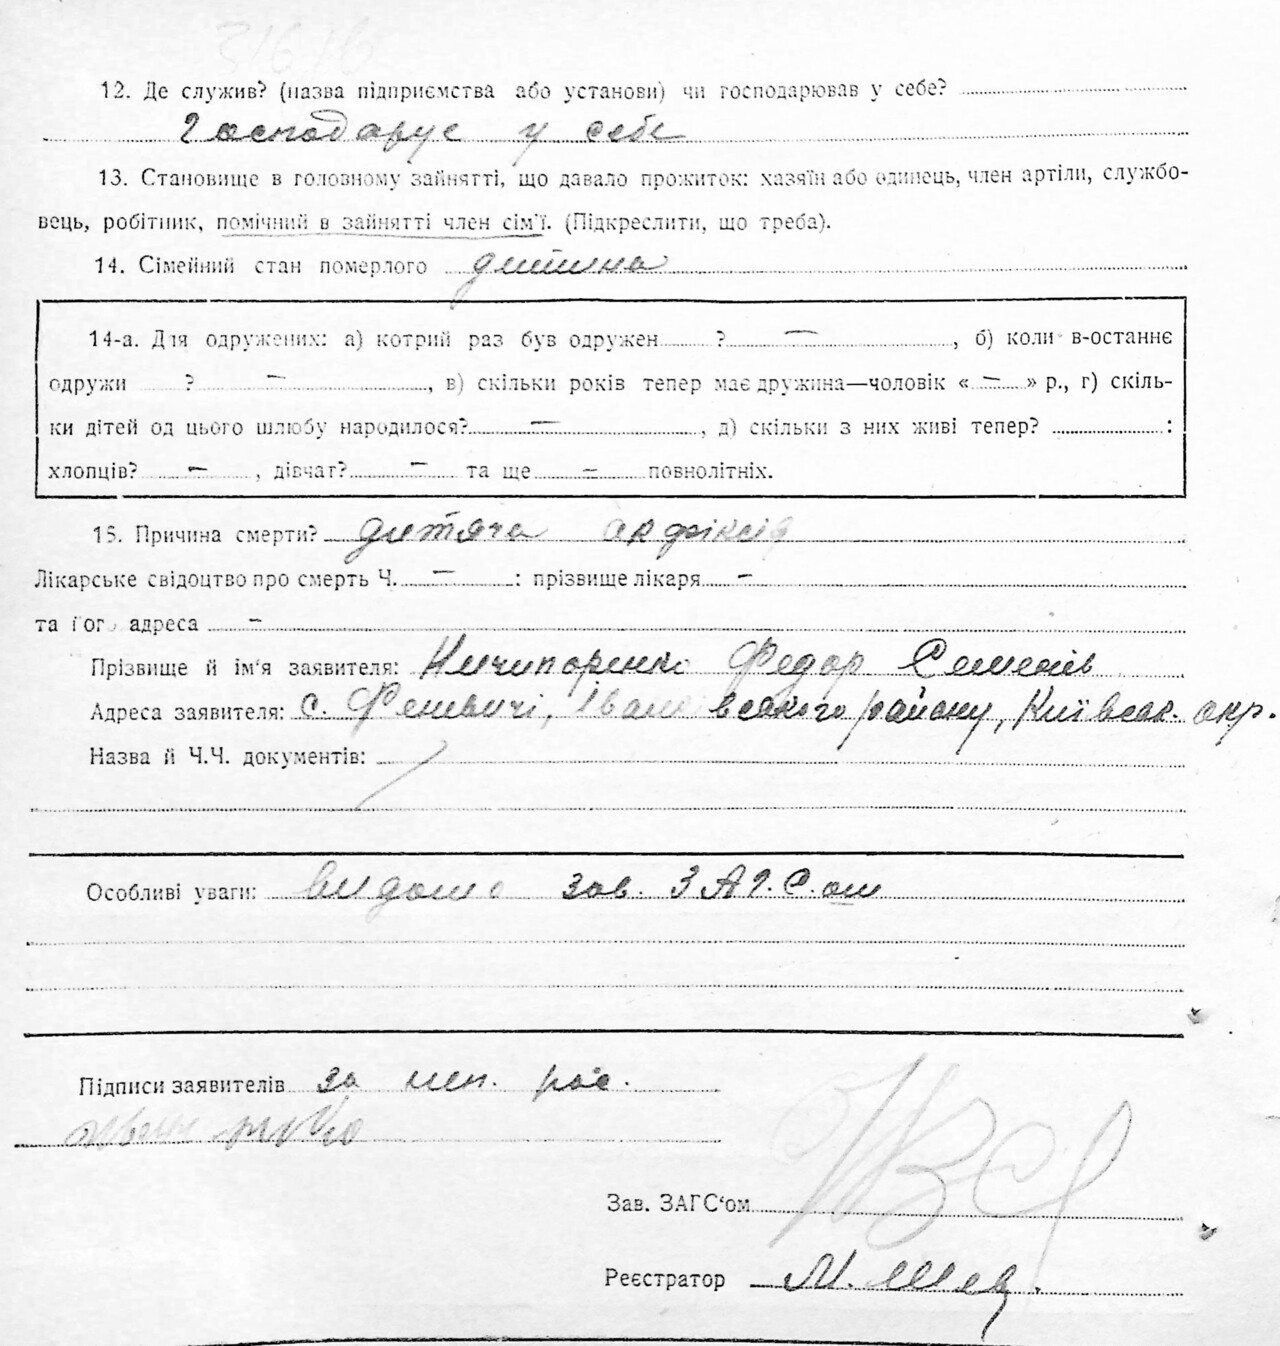 12. Де служив? (назва підприємства або установи) чи господарював у себе?
Господарує у себе
13. Становище в головному зайнятті, що давало прожиток: хазяїн або одинець, член артіли, службо-
вець, робітник, помічний в зайнятті член сім'ї. (Підкреслити, що треба).
14. Сімейний стан померлого дитина
14-а. Для одружених: а) котрий раз був одружен ? — , б) коли в-останнє
одружи ? — , в) скільки років тепер має дружина—чоловік « — » р., г) скіль-
ки дітей од цього шлюбу народилося? — , д) скільки з них живі тепер? :
хлопців? — , дівчат? — та ще = повнолітніх.
15. Причина смерти? дитяча
Лікарське свідоцтво про смерть Ч. — : прізвище лікаря –
та його адреса –
Прізвище й ім'я заявителя: Ничипоренко Федор Семенів
Адреса заявителя: с. Феневичі, району, Київськ. окр.
Назва й Ч.Ч. документів:
Особливі уваги: видано зав. ЗАГ.С.ом
Підписи заявителів за неп.
Зав. ЗАГС'ом
Реєстратор М.